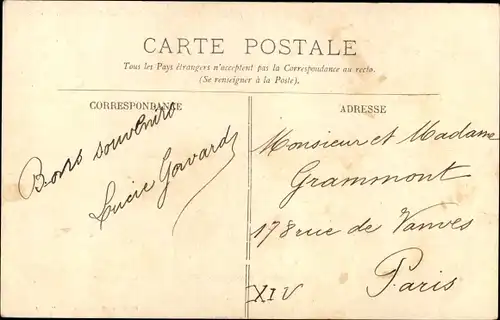 CARTE POSTALE
Tous les Pays étrangers n'acceptent pas la Correspondance au recto.
(Se renseigner à la Poste).
CORRESPONDANCE
Bons souvenirs
Lucie
ADRESSE
Monsieur et Madame
Grammont
178 rue de Vanves
Paris
XIV